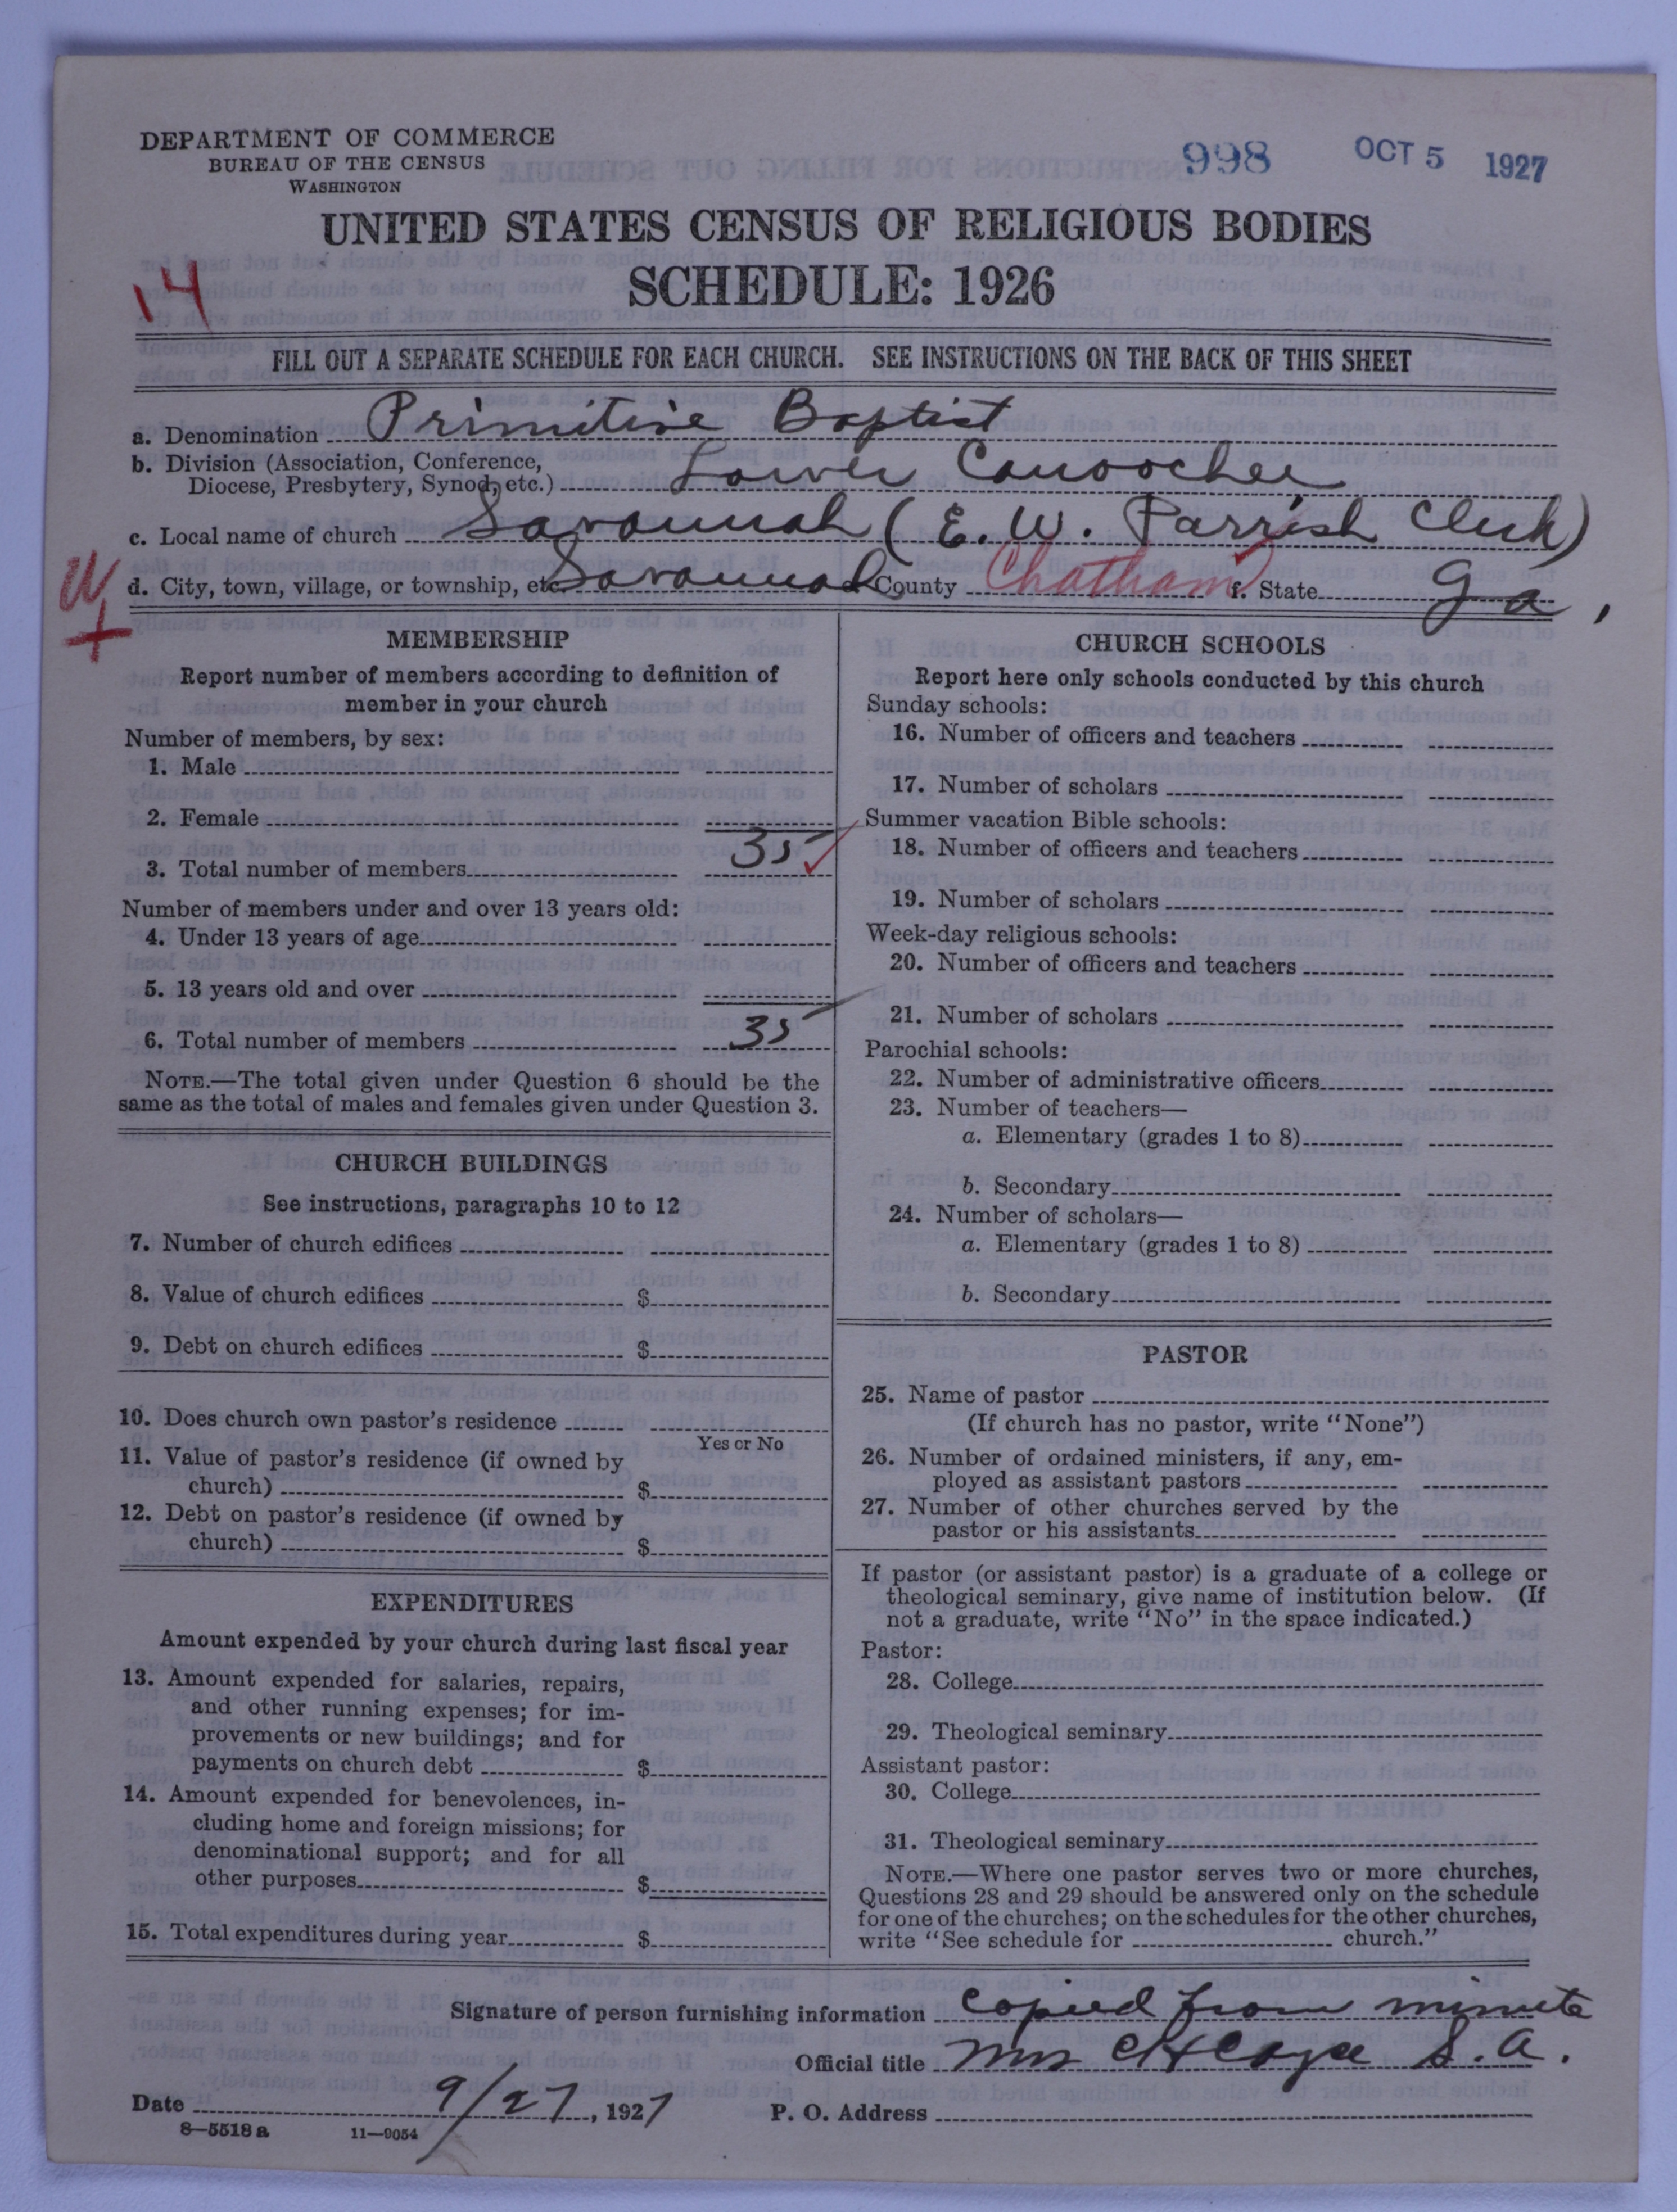 DEPARTMENT OF COMMERCE
BUREAU OF THE CENSUS
WASHINGTON
998 OCT 5 1927
UNITED STATES CENSUS OF RELIGIOUS BODIES
SCHEDULE: 1926
14
FILL OUT A SEPARATE SCHEDULE FOR EACH CHURCH. SEE INSTRUCTIONS ON THE BACK OF THIS SHEET
a. Denomination Primitive Baptist
b. Division (Association, Conference,
Diocese, Presbytery, Synod, etc.) Lower Canoochee
c. Local name of church Savannah (E. W. Parrish Clerk)
W
d. City, town, village, or township, etc. Savannah County Chatham f. State Ga.
+
MEMBERSHIP
Report number of members according to definition of
member in your church
Number of members, by sex:
1. Male
2. Female
3. Total number of members 35
Number of members under and over 13 years old:
4. Under 13 years of age
5. 13 years old and over
6. Total number of members 35
NOTE.—The total given under Question 6 should be the
same as the total of males and females given under Question 3.
CHURCH BUILDINGS
See instructions, paragraphs 10 to 12
7. Number of church edifices
8. Value of church edifices $
9. Debt on church edifices $
10. Does church own pastor's residence
Yes or No
11. Value of pastor's residence (if owned by
church) $
12. Debt on pastor's residence (if owned by
church) $
EXPENDITURES
Amount expended by your church during last fiscal year
13. Amount expended for salaries, repairs,
and other running expenses; for im-
provements or new buildings; and for
payments on church debt $
14. Amount expended for benevolences, in-
cluding home and foreign missions; for
denominational support; and for all
other purposes $
15. Total expenditures during year $
CHURCH SCHOOLS
Report here only schools conducted by this church
Sunday schools:
16. Number of officers and teachers
17. Number of scholars
Summer vacation Bible schools:
18. Number of officers and teachers
19. Number of scholars
Week-day religious schools:
20. Number of officers and teachers
21. Number of scholars
Parochial schools:
22. Number of administrative officers
23. Number of teachers—
a. Elementary (grades 1 to 8)
b. Secondary
24. Number of scholars—
a. Elementary (grades 1 to 8)
b. Secondary
PASTOR
25. Name of pastor
(If church has no pastor, write "None")
26. Number of ordained ministers, if any, em-
ployed as assistant pastors
27. Number of other churches served by the
pastor or his assistants
If pastor (or assistant pastor) is a graduate of a college or
theological seminary, give name of institution below. (If
not a graduate, write "No" in the space indicated.)
Pastor:
28. College
29. Theological seminary
Assistant pastor:
30. College
31. Theological seminary
NOTE.—Where one pastor serves two or more churches,
Questions 28 and 29 should be answered only on the schedule
for one of the churches; on the schedules for the other churches,
write "See schedule for church."
Signature of person furnishing information copied from minute
Official title Mrs S. A.
Date 9/27, 1927 P. O. Address
8—5518 a 11—9054